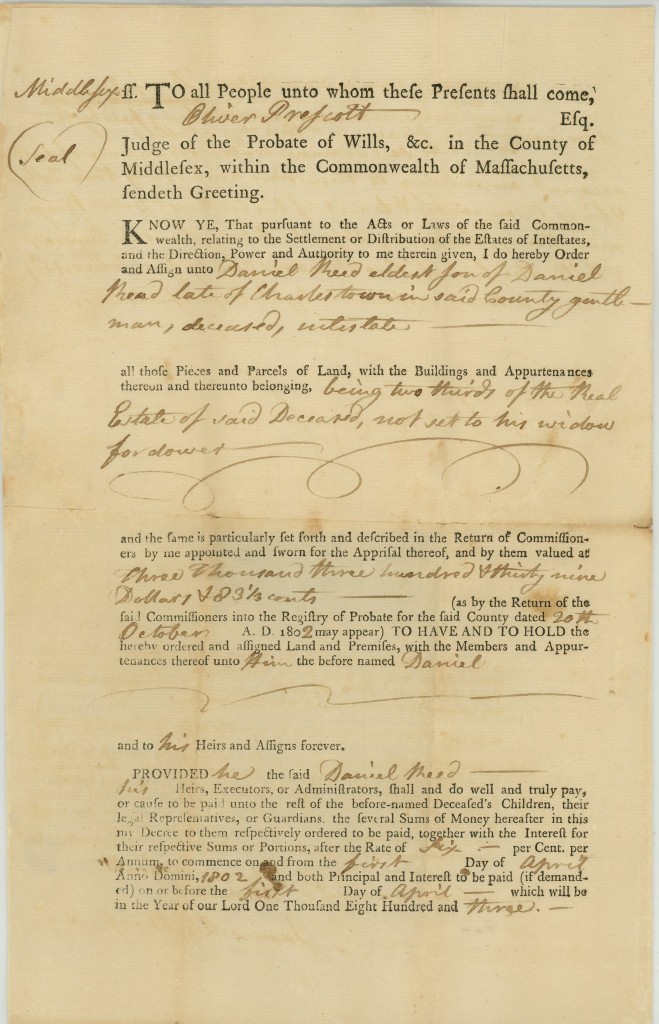 Middlesex ſſ. TO all People unto whom theſe Preſents ſhall come,
Oliver Preſcott Eſq.
(Seal) Judge of the Probate of Wills, &c. in the County of
Middleſex, within the Commonwealth of Maſſachuſetts,
ſendeth Greeting.
KNOW YE, That purſuant to the Acts or Laws of the ſaid Common-
wealth, relating to the Settlement or Diſtribution of the Eſtates of Inteſtates,
and the Direction, Power and Authority to me therein given, I do hereby Order
and Aſſign unto Daniel Reed eldest ſon of Daniel
Read late of Charlestown in said County gentle-
man, deceased, intestate
all thoſe Pieces and Parcels of Land, with the Buildings and Appurtenances
thereon and thereunto belonging, being two thirds of the Real
Estate of said Deceased, not set to his widow
for dower
and the ſame is particularly ſet forth and deſcribed in the Return of Commiſſion-
ers by me appointed and ſworn for the Appriſal thereof, and by them valued at
Three Thousand three hundred & thirty nine
Dollars & 83 1/3 cents (as by the Return of the
ſaid Commiſſioners into the Regiſtry of Probate for the ſaid County dated 20th
October A. D. 1802 may appear) TO HAVE AND TO HOLD the
hereby ordered and aſſigned Land and Premiſes, with the Members and Appur-
tenances thereof unto Him the before named Daniel
and to his Heirs and Aſſigns forever.
PROVIDED he the ſaid Daniel Reed
his Heirs, Executors, or Adminiſtrators, ſhall and do well and truly pay,
or cauſe to be paid unto the reſt of the before-named Deceaſed's Children, their
legal Repreſentatives, or Guardians. the ſeveral Sums of Money hereafter in this
my Decree to them reſpectively ordered to be paid, together with the Intereſt for
their reſpective Sums or Portions, after the Rate of Six — per Cent. per
Annum, to commence on and from the first Day of April
Anno Domini, 1802 and both Principal and Intereſt to be paid (if demand-
ed) on or before the first Day of April — which will be
in the Year of our Lord One Thouſand Eight Hundred and three. —